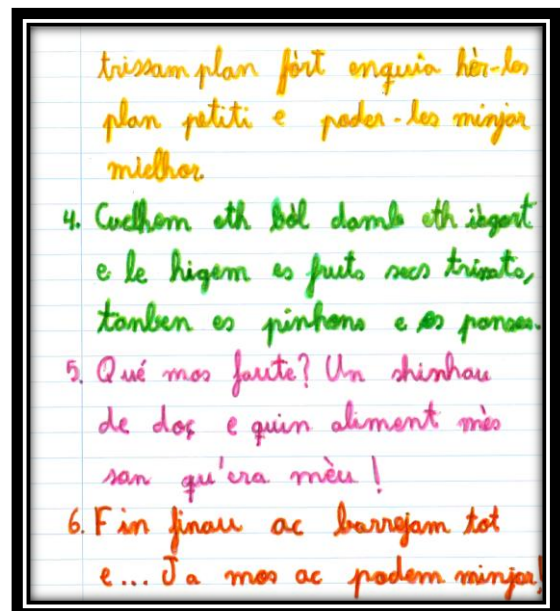 trissam plan fòrt enquia hèr-les
plan petiti e poder-les minjar
mielhor.
4. Cuelhem eth bòl damb eth iògort
e le higem es fruts secs trissats,
tanben es pinhons e es panses.
5. Qué mos faute? Un shinhau
de doç e quin aliment mès
san qu'era mèu!
6. Fin finau ac barrejam tot
e... Ja mos ac podem minjar!